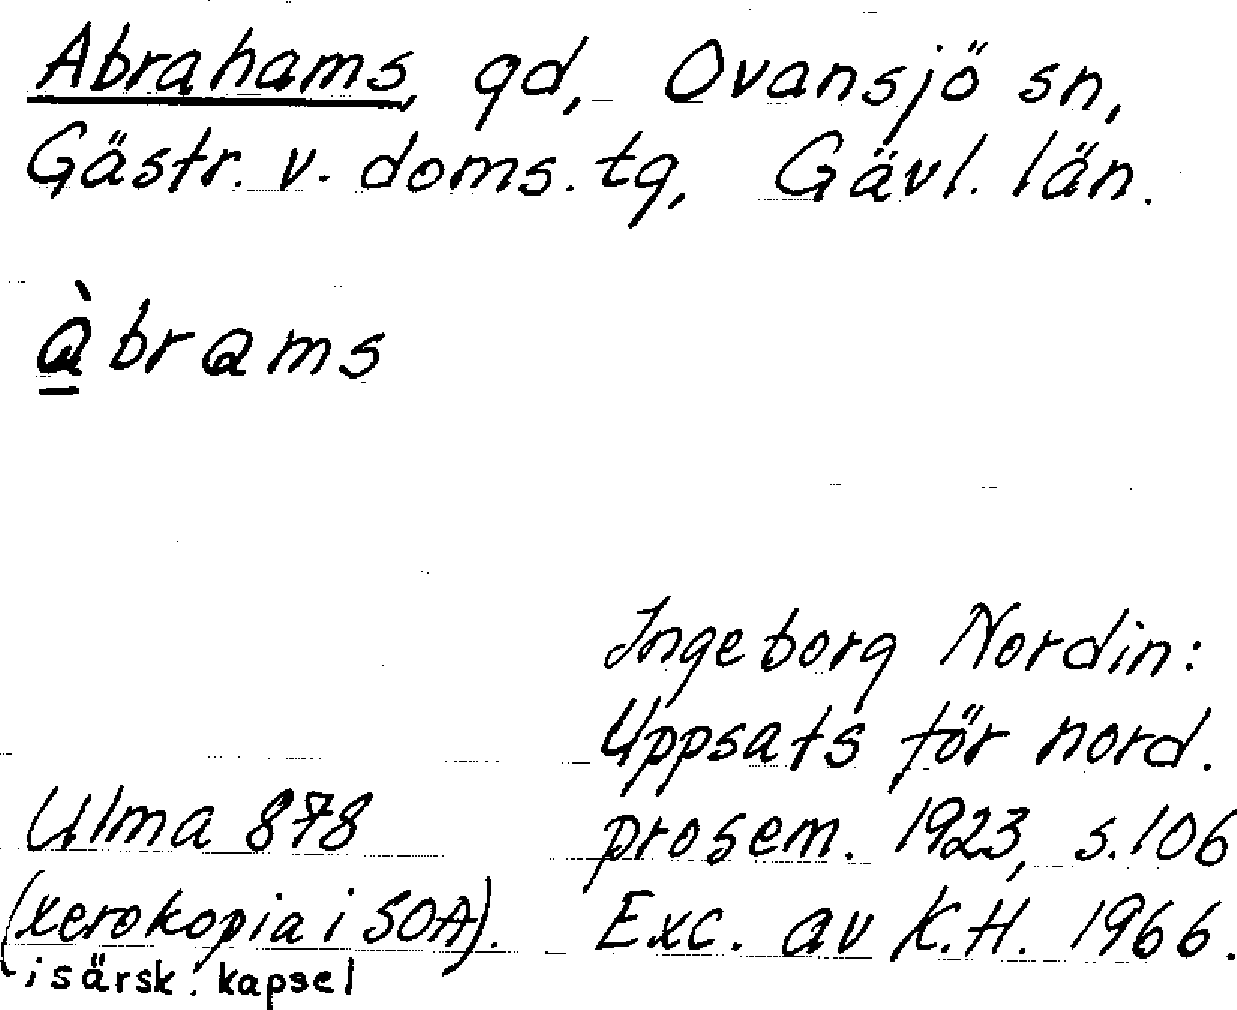 Abrahams, gd, Ovansjö sn,
Gästr. v. doms. tg, Gävl. län.
àbrams
Ingeborg Nordin:
Uppsats för nord.
prosem. 1923, s.106
Exc. av K.H. 1966.
Ulma 878
(xerokopia i SOA).
i särsk. kapsel